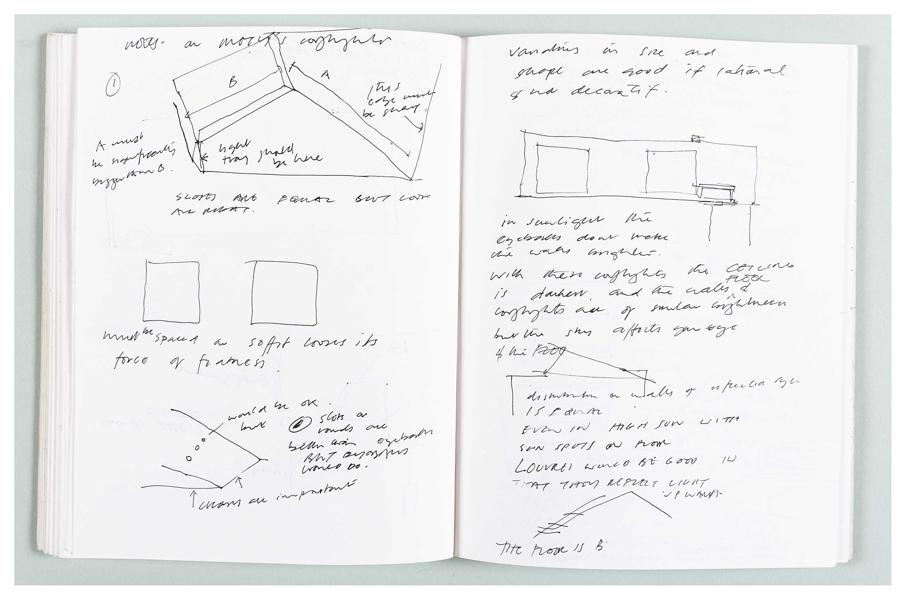 notes on
1
B
A
This
edge must
be sharp.
A must
be significantly
bigger than B.
light
tray should
be here
SLOPES ARE EQUAL BUT LOOK
ALL RIGHT.
must be spaced or soffit looses its
force of flatness.
would be OK
but
slots or
rounds are
better than eyeballs
BUT
would do.
are important
Variations in size and
shape are good if rational
& not decorative.
in sunlight the
eyeballs dont make
the walls brighter.
with these the CEILING
FLOOR
is darker, and the walls &
are of similar brightness
but the sky affects your eye
& the FLOOR
distribution on walls of reflected light
IS EQUAL
EVEN IN HIGH SUN WITH
SUN SPOTS ON FLOOR
LOUVRES WOULD BE GOOD IN
THAT THEY REFLECT LIGHT
UP WARDS
THE FLOOR IS